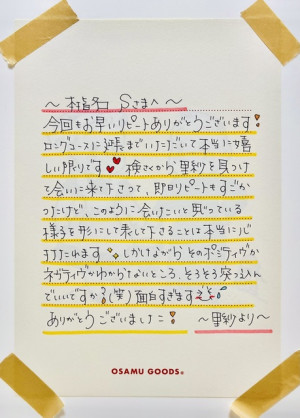 〜本指名 Sさまへ〜
今回もお早いリピートありがとうございます!
ロングコースに延長までいただいて本当に嬉
しい限りです 検さくから里紗を見つけ
て会いに来て下さって、即日リピートもすごか
ったけど、このように会いたいと思っている
様子を形にして来して下さることは本当に心
打たれます しかしながらそのポジティヴか
ネガティヴかわからないところ、そろそろ突っ込ん
でいいですか?(笑)面白すぎます
ありがとうございました!
〜里紗より〜
OSAMU GOODS®